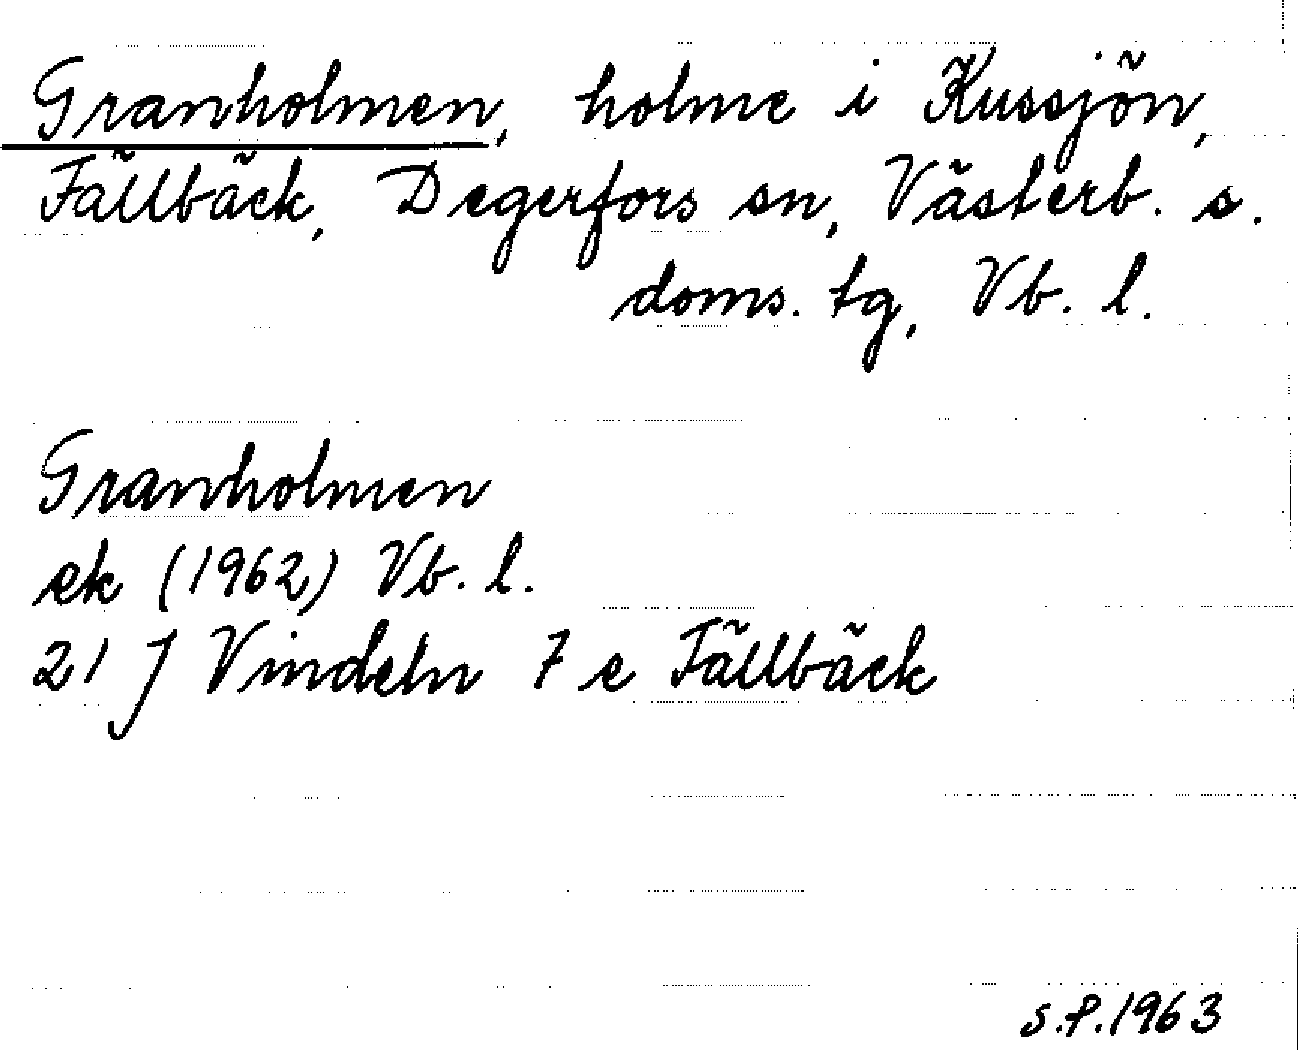 Granholmen, holme i Kussjön,
Fällbäck, Degerfors sn, Västerb. s.
doms. tg, Vb. l.
Granholmen
ek (1962) Vb. l.
21 J Vindeln 7 e Fällbäck
S.P.1963